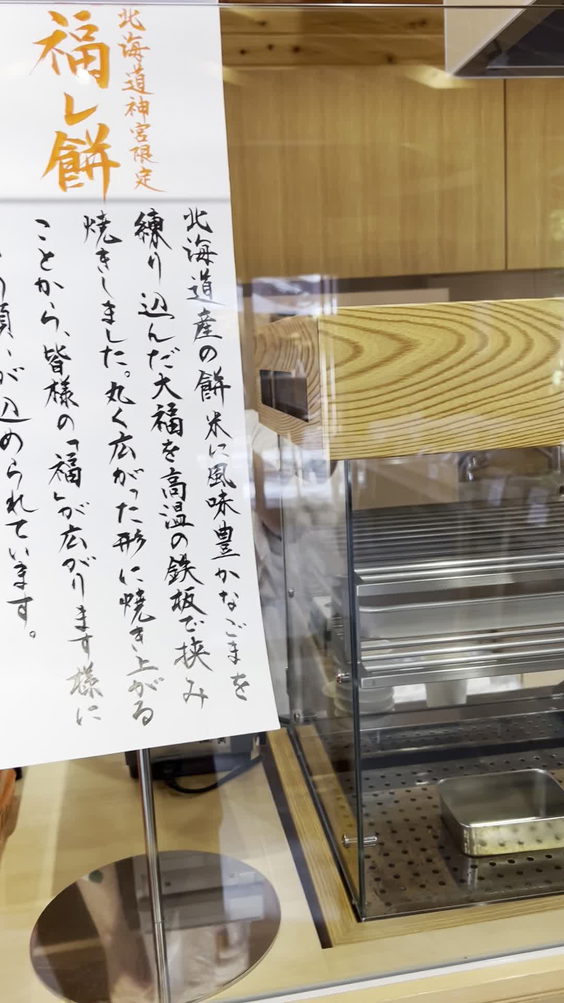 北海道神宮限定
福レ餅
北海道産の餅米に風味豊かなごまを
練り込んだ大福を高温の鉄板で挟み
焼きしました。丸く広がった形に焼き上がる
ことから、皆様の「福」が広がります様に
う願いが込められています。